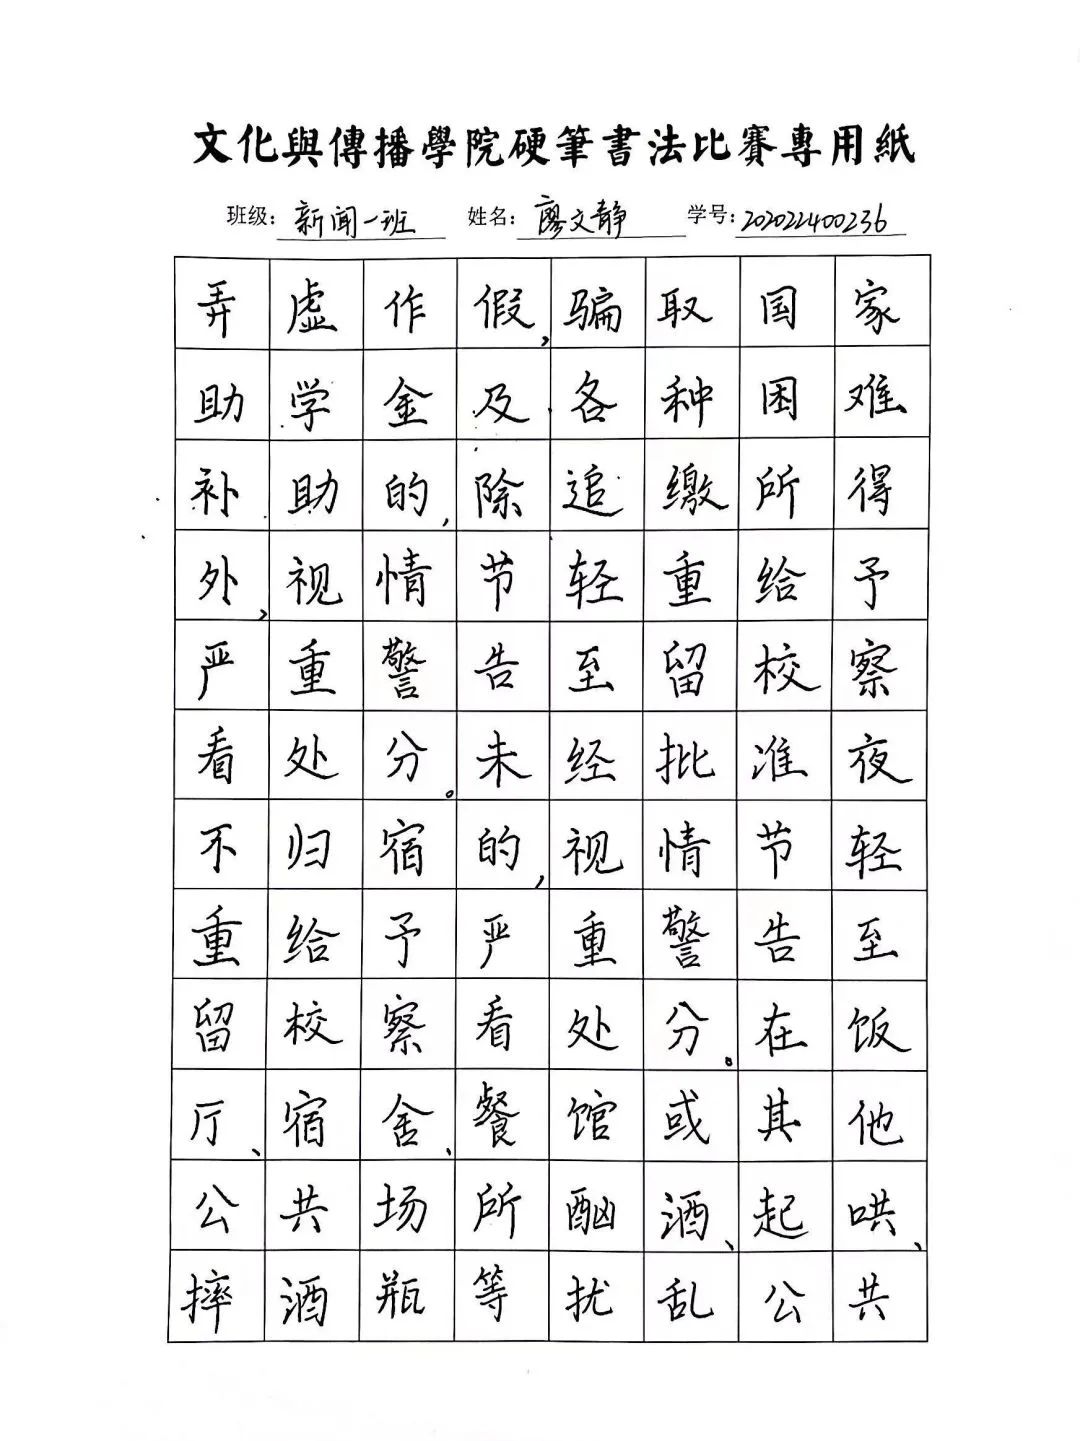 文化與傳播學院硬筆書法比賽專用紙
班级：新闻一班 姓名：廖文静 学号：202022400236
弄虚作假，骗取国家
助学金及各种困难
补助的，除追缴所得
外，视情节轻重给予
严重警告至留校察
看处分。未经批准夜
不归宿的，视情节轻
重给予严重警告至
留校察看处分。在饭
厅、宿舍、餐馆或其他
公共场所酗酒、起哄、
摔酒瓶等扰乱公共